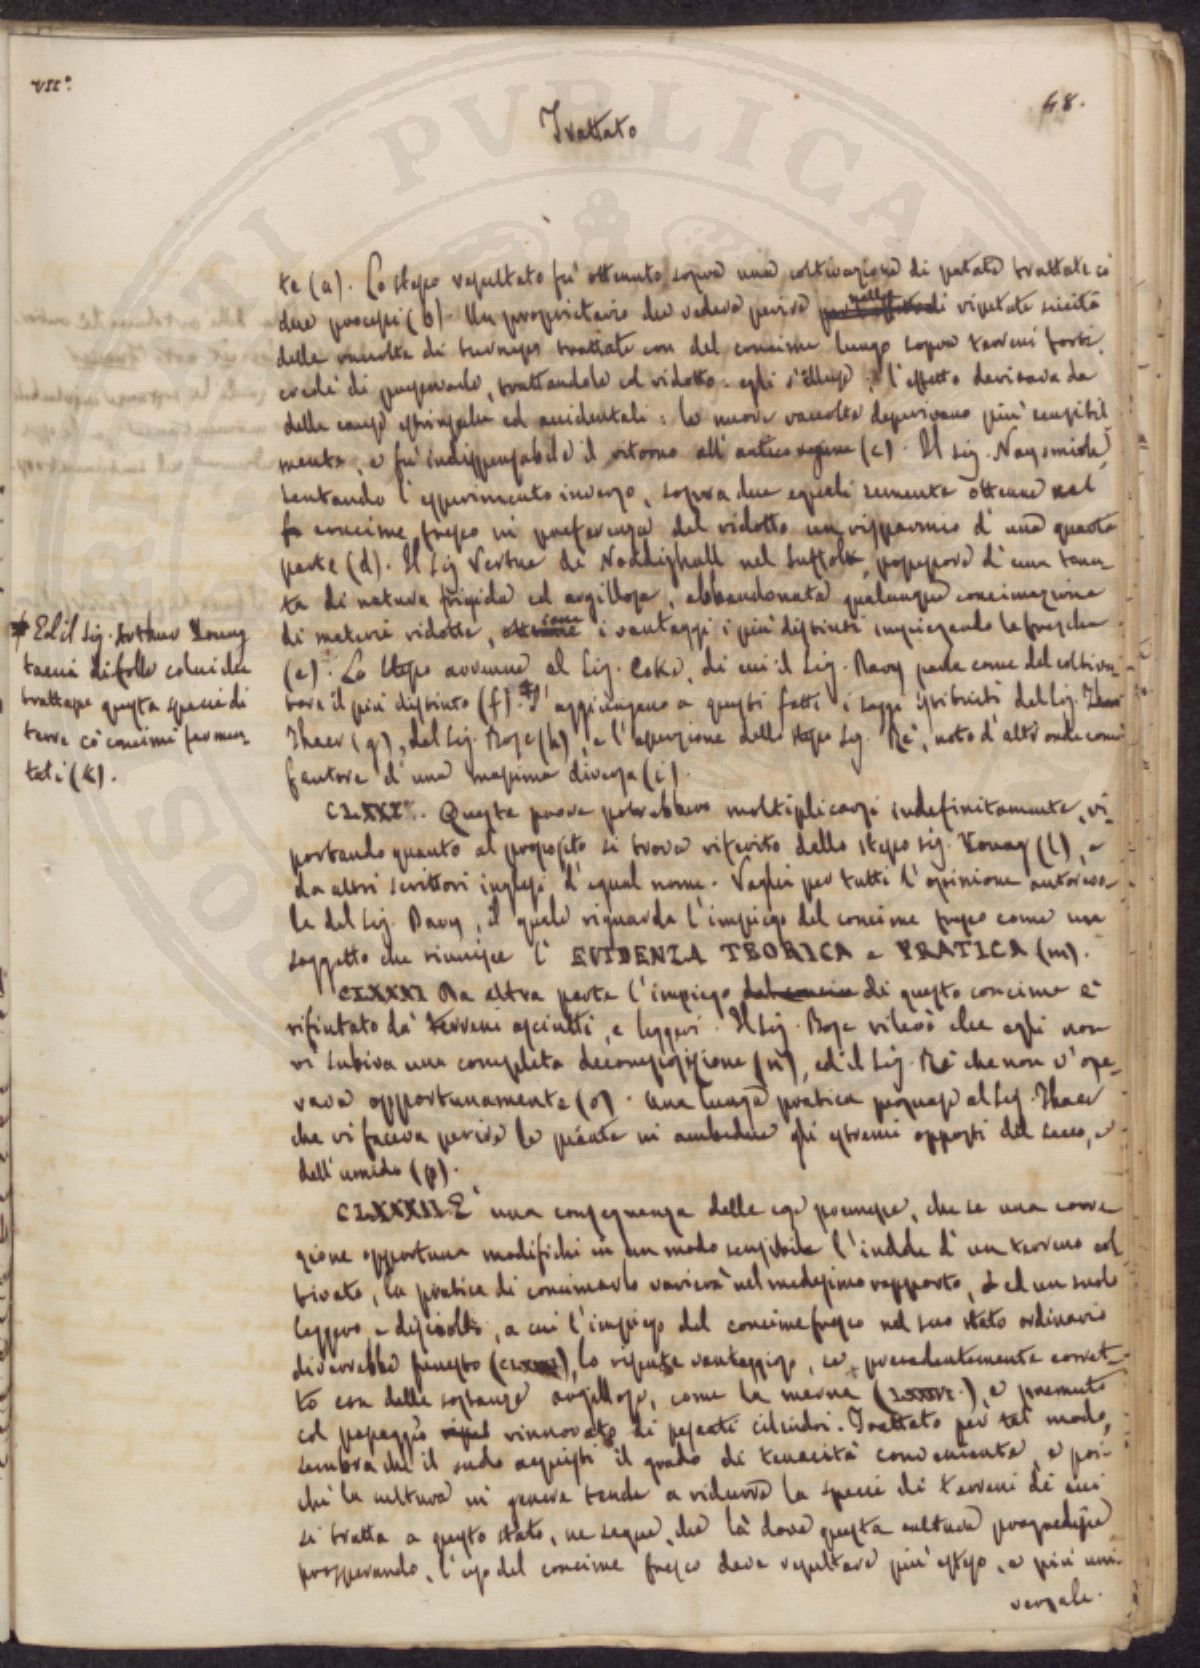 VII°.
48.
Trattato
te (a). Lo stesso resultato fu ottenuto sopra una coltivazione di patate trattate co'
due processi (b). Un proprietario che vedeva perire nelle ripetute siccità
delle raccolte di turneps trattate con del concime lungo sopra terreni forti,
credé di preservarle, trattandole col ridotto: egli s'illuse; l'effetto derivava da
delle cause estrinseche ed accidentali: le nuove raccolte deperivano più sensibil
mente, e fu indispensabile il ritorno all'antico regime (c). Il Sig. Naysmith,
tentando l'esperimento inverso, sopra due eguali sementa ottenne col
concime fresco in preferenza del ridotto un risparmio d'una quarta
parte (d). Il Sig. Vertue di Noddishall nel Suffolk, possessore d'una tenu
ta di natura frigida ed argillosa, abbandonata qualunque concimazione
di materie ridotte, i vantaggi i più distinti impiegando le fresche
(e). Lo stesso avvenne al Sig. Coke, di cui il Sig. Davy parla come del coltiva
tore il più distinto (f).# S'aggiungano a questi fatti i saggi istituiti del Sig.
Thaer (g), del Sig. Bosc (h), e l'asserzione dello stesso Sig. Re, noto d'altronde come
fautore d'una massima diversa (i).
# Ed il Sig. Arturo Young
taccia di folle colui che
trattasse questa specie di
terre co' concimi fermen
tati (k).
CLXXX°. Queste prove potrebbero moltiplicarsi indefinitamente, ri
portando quanto al proposito si trova riferito dallo stesso Sig. Young (l), e
da altri scrittori inglesi d'egual nome. Vaglia per tutti l'opinione autorevo
le del Sig. Davy, il quale riguarda l'impiego del concime fresco come un
soggetto che riunisce l'EVIDENZA TEORICA e PRATICA (m).
CLXXXI Da altra parte l'impiego di questo concime è
rifiutato da' terreni asciutti, e leggeri. Il Sig. Bosc rilevò che egli non
vi subiva una completa decomposizione (n), ed il Sig. Re che non v'ope
rava opportunamente (o). Una lunga pratica persuase al Sig. Thaer
che vi faceva perire le piante in ambedue gli estremi opposti del secco, e
dell'umido (p).
CLXXXII. È una conseguenza delle cose premesse, che se una corre
zione opportuna modifichi in un modo sensibile l'indole d'un terreno col
tivato, la pratica di concimarlo varierà nel medesimo rapporto, ed un suolo
leggero e disciolto, a cui l'impiego del concime fresco nel suo stato ordinario
diverrebbe funesto (CLXXXI), lo risente vantaggioso, se precedentemente corret
to con delle sostanze argillose, come la marna (LXXXVI.), e premuto
col passaggio rinnovato di pesanti cilindri. Trattato per tal modo,
sembra che il suolo acquisti il grado di tenacità conveniente, e poi
ché la cultura in genere tende a ridurre la specie di terreni di cui
si tratta a questo stato, ne segue, che là dove questa cultura progredisce
prosperando, l'uso del concime fresco deve resultare più esteso, e più uni
versale.